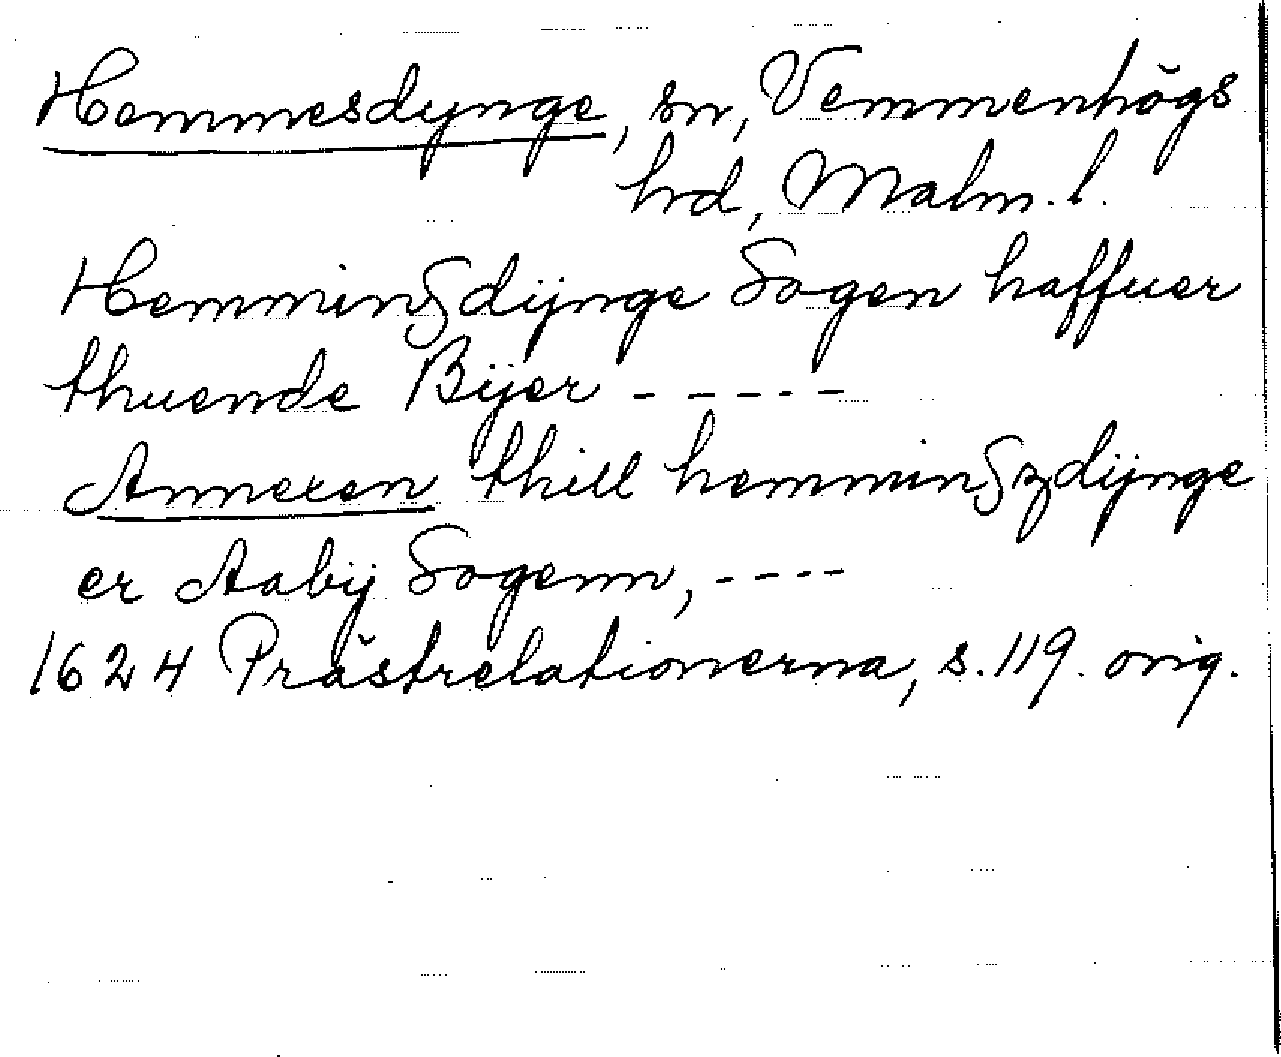 Hemmesdynge, sn, Vemmenhögs
hd, Malm. l.
Hemmingdijnge Sogen haffuer
thuende Bijer - - - - -
Annexen thill hemmingzdijnge
er Aabij Sogenn, - - - -
1624 Prästrelationerna, s. 119. orig.